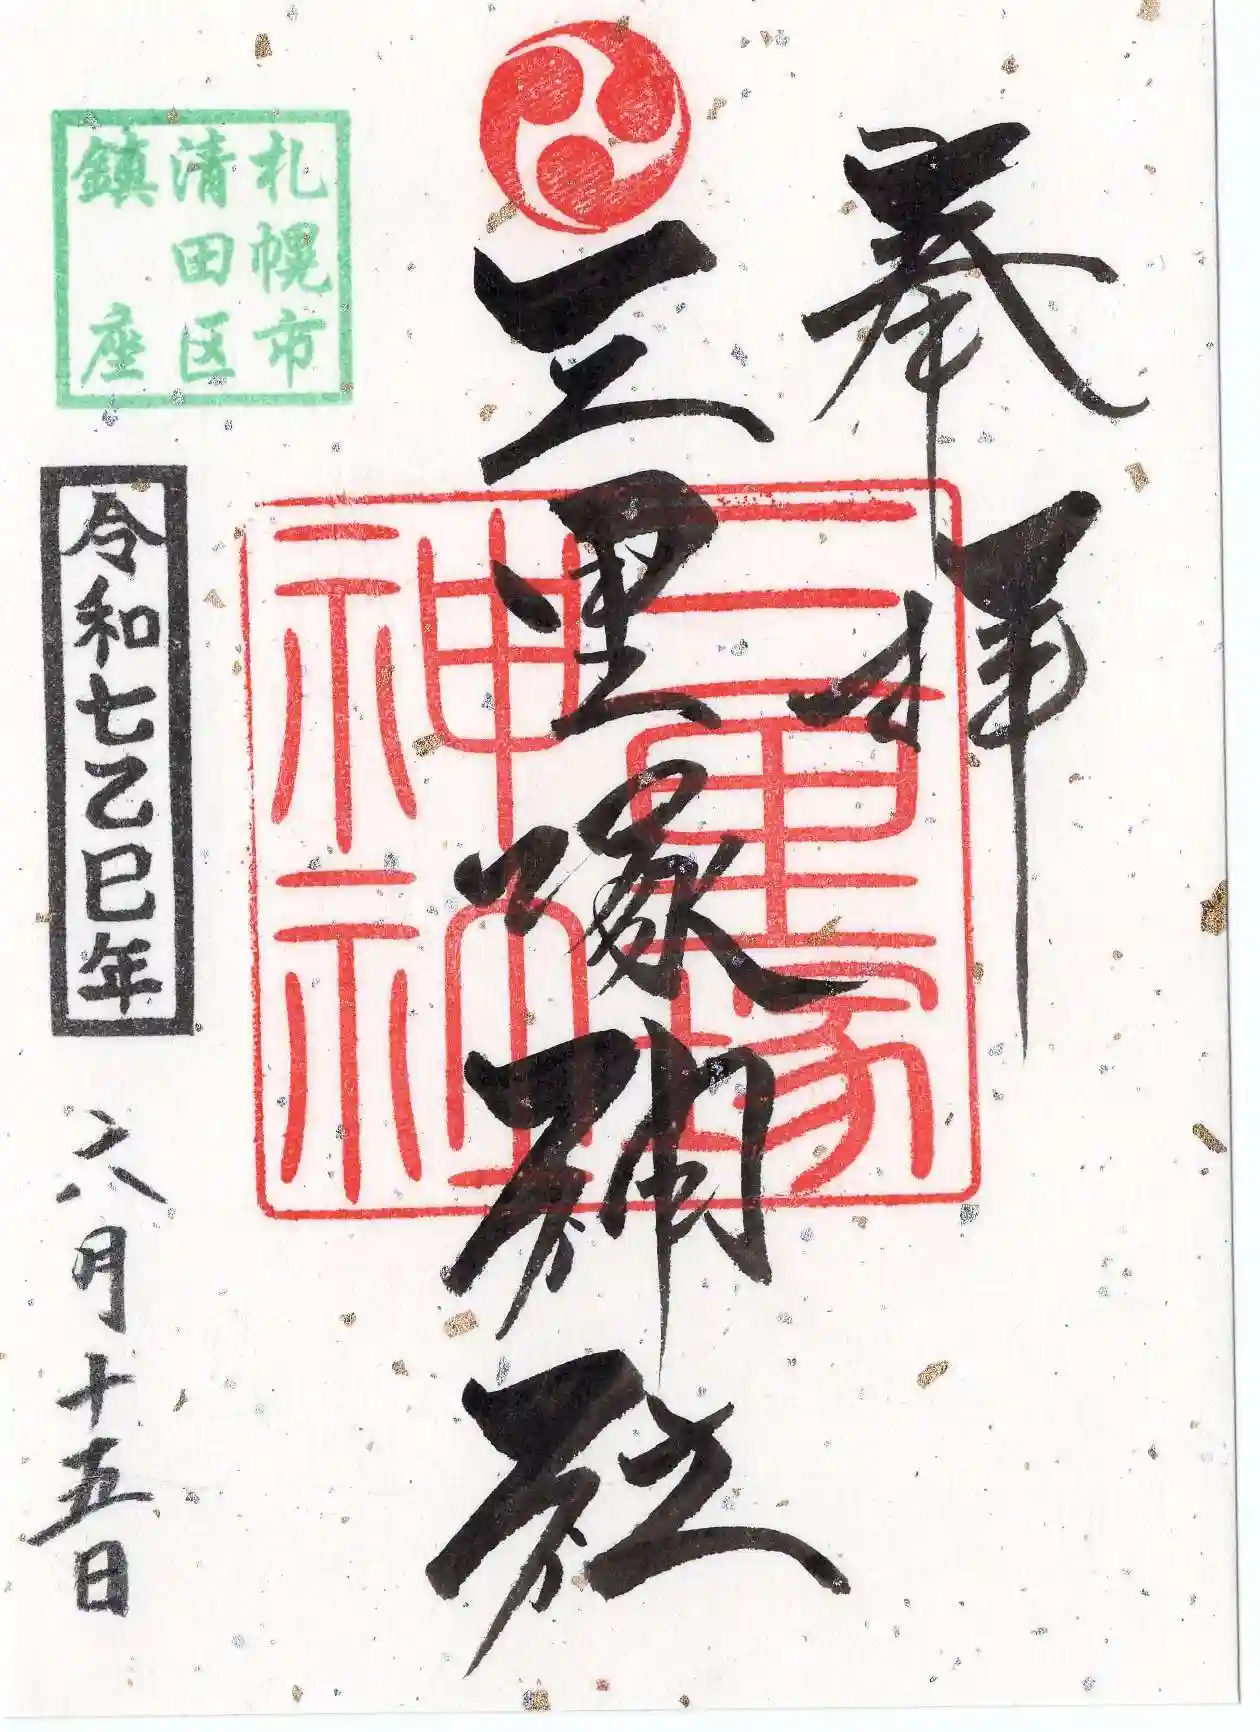 奉拝
三里塚神社
三里塚
神社
札幌市
清田区
鎮座
令和七乙巳年
六月十五日